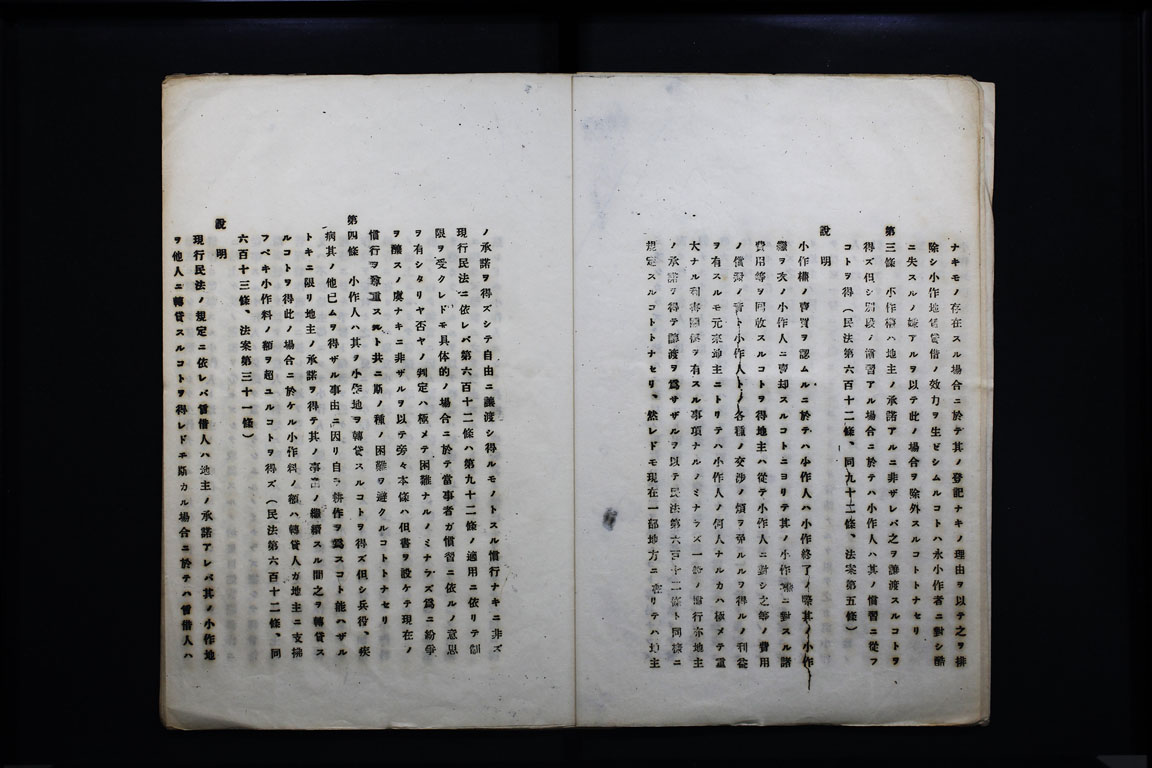 ナキモノ存在スル場合ニ於テ其ノ登記ナキノ理由ヲ以テ之ヲ排
除シ小作地賃貸借ノ效力ヲ生ゼシムルコトハ永小作者ニ對シ酷
ニ失スルノ嫌アルヲ以テ此ノ場合ヲ除外スルコトトナセリ
第三條 小作權ハ地主ノ承諾アルニ非ザレバ之ヲ讓渡スルコトヲ
得ズ但シ別段ノ慣習アル場合ニ於テハ小作人ハ其ノ慣習ニ從フ
コトヲ得(民法第六百十二條、同九十二條、法案第五條)
說明
小作權ノ賣買ヲ認ムルニ於テハ小作人ハ小作終了ノ際其ノ小作
權ヲ次ノ小作人ニ賣却スルコトニヨリテ其ノ小作權ニ對スル諸
費用等ヲ回收スルコトヲ得地主ハ從テ小作人ニ對シ之等ノ費用
ノ償還ノ責ト小作人トノ各種ノ交渉ノ煩ヲ免ルルヲ得ルノ利益
ヲ有スルモ元來地主ニトリテハ小作人ノ何人ナルカハ極メテ重
大ナル利害關係ヲ有スル事項ナルノミナラズ一般ノ慣行亦地主
ノ承諾ヲ得テ讓渡ヲ爲サザルヲ以テ民法第六百十二條ト同樣ニ
規定スルコトトナセリ、然レドモ現在一部地方ニ在リテハ地主
ノ承諾ヲ得ズシテ自由ニ讓渡シ得ルモノトスル慣行ナキニ非ズ
現行民法ニ依レバ第六百十二條ハ第九十二條ノ適用ニ依リテ制
限ヲ受クレドモ具体的ノ場合ニ於テ當事者ガ慣習ニ依ルノ意思
ヲ有シタリヤ否ヤノ判定ハ極メテ困難ナルノミナラズ爲ニ紛爭
ヲ釀スノ虞ナキニ非ザルヲ以テ旁々本條ハ但書ヲ設ケテ現在ノ
慣行ヲ尊重スルト共ニ斯ノ種ノ困難ヲ避クルコトトナセリ
第四條 小作人ハ其ヲ小作地ヲ轉貸スルコトヲ得ズ但シ兵役、疾
病其ノ他已ムヲ得ザル事由ニ因リ自ラ耕作ヲ爲スコト能ハザル
トキニ限リ地主ノ承諾ヲ得テ其ノ事由ノ繼續スル間之ヲ轉貸ス
ルコトヲ得此ノ場合ニ於ケル小作料ノ額ハ轉貸人ガ地主ニ支拂
フベキ小作料ノ額ヲ超ユルコトヲ得ズ(民法第六百十二條、同
六百十三條、法案第三十一條)
說明
現行民法ノ規定ニ依レバ賃借人ハ地主ノ承諾アレバ其ノ小作地
ヲ他人ニ轉貸スルコトヲ得レドモ斯カル場合ニ於テハ賃借人ハ